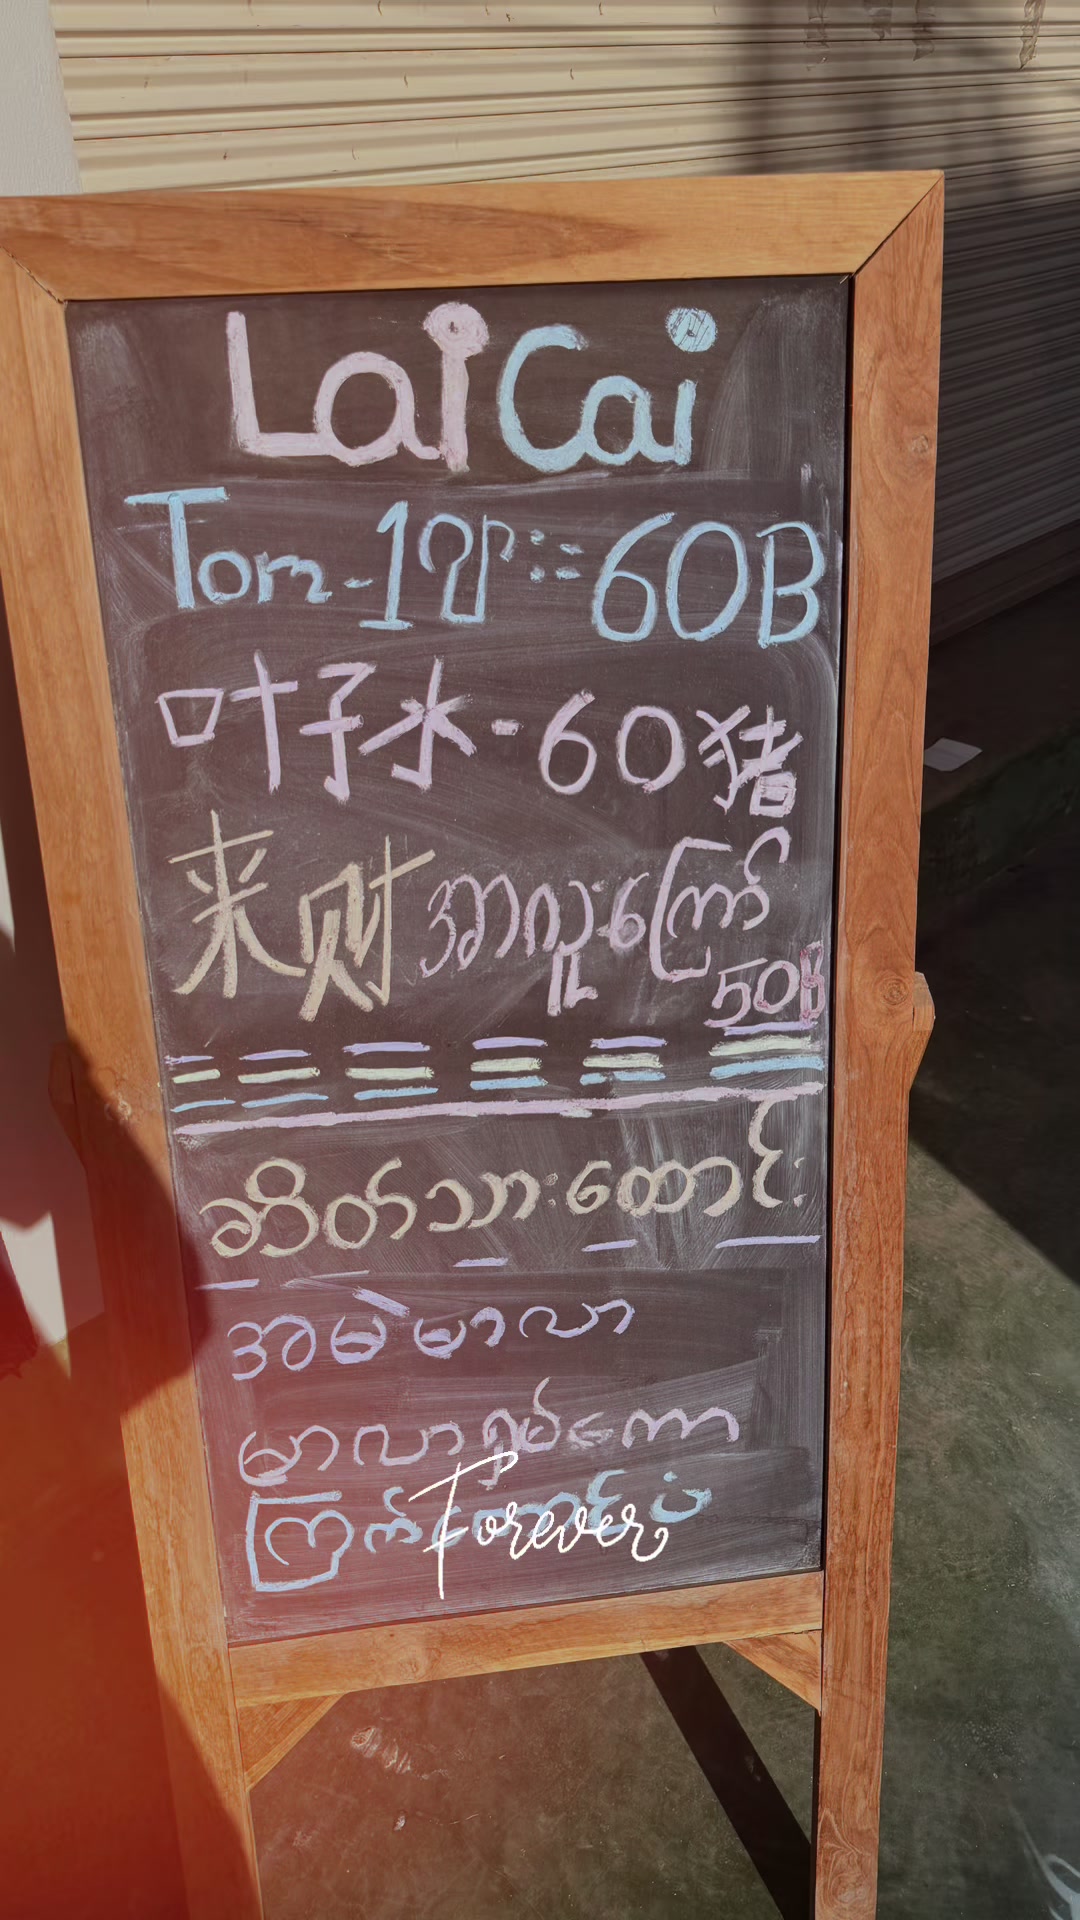 Lai Cai
Tom-1ทุ่ม=60B
叶子水-60猪
来财 အာလူးကြော်
50B
ဆိတ်သားထောင်း
အမဲမာလာ
မာလာရှမ်းကော
ကြက်
Forever